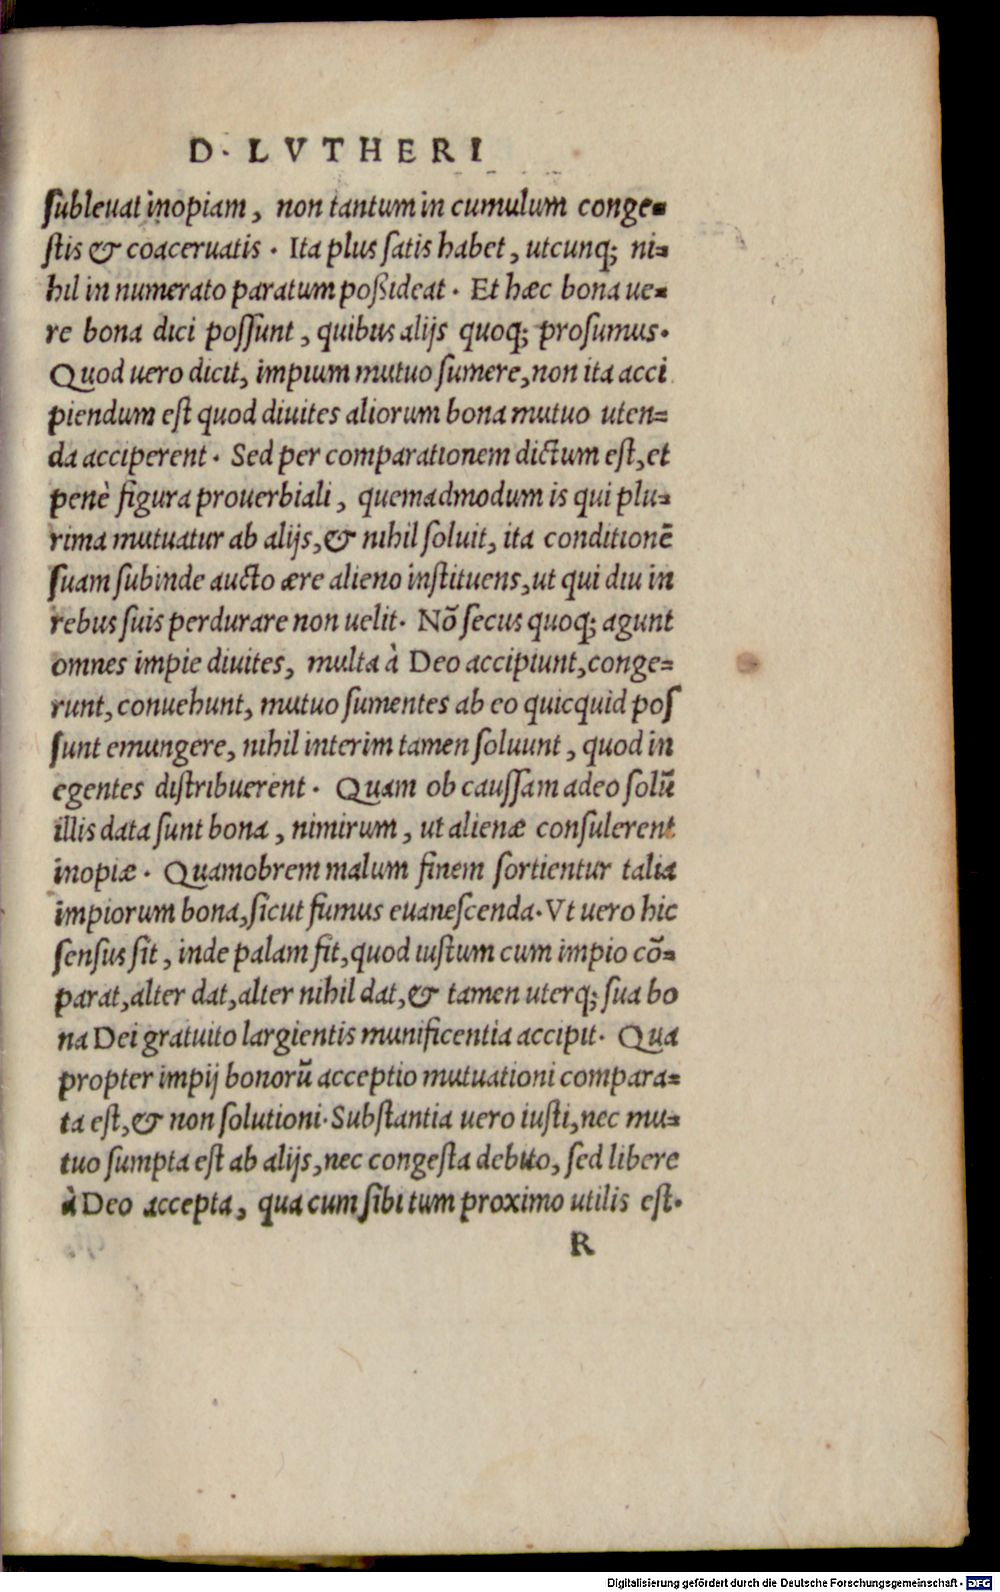 D. LVTHERI
ſubleuat inopiam, non tantum in cumulum conge-
ſtis & coaceruatis. Ita plus ſatis habet, utcunq; ni-
hil in numerato paratum poßideat. Et hæc bona ue-
re bona dici poſſunt, quibus alijs quoq; proſumus.
Quod uero dicit, impium mutuo ſumere, non ita acci
piendum eſt quod diuites aliorum bona mutuo uten-
da acciperent. Sed per comparationem dictum eſt, et
penè figura prouerbiali, quemadmodum is qui plu-
rima mutuatur ab alijs, & nihil ſoluit, ita conditionē
ſuam ſubinde aucto ære alieno inſtituens, ut qui diu in
rebus ſuis perdurare non uelit. Nõ ſecus quoq; agunt
omnes impie diuites, multa à Deo accipiunt, conge-
runt, conuehunt, mutuo ſumentes ab eo quicquid poſ
ſunt emungere, nihil interim tamen ſoluunt, quod in
egentes diſtribuerent. Quam ob cauſſam adeo ſolũ
illis data ſunt bona, nimirum, ut alienæ conſulerent
inopiæ. Quamobrem malum finem ſortientur talia
impiorum bona, ſicut fumus euaneſcenda. Vt uero hic
ſenſus ſit, inde palam fit, quod iuſtum cum impio cõ-
parat, alter dat, alter nihil dat, & tamen uterq; ſua bo
na Dei gratuito largientis munificentia accipit. Qua
propter impij bonorũ acceptio mutuationi compara-
ta eſt, & non ſolutioni. Subſtantia uero iuſti, nec mu-
tuo ſumpta eſt ab alijs, nec congeſta debito, ſed libere
à Deo accepta, qua cum ſibi tum proximo utilis eſt.
R
Digitalisierung gefördert durch die Deutsche Forschungsgemeinschaft - DFG